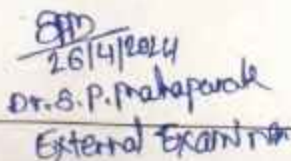 26/4/2024
Dr. S. P. Mahapatra
External Examiner